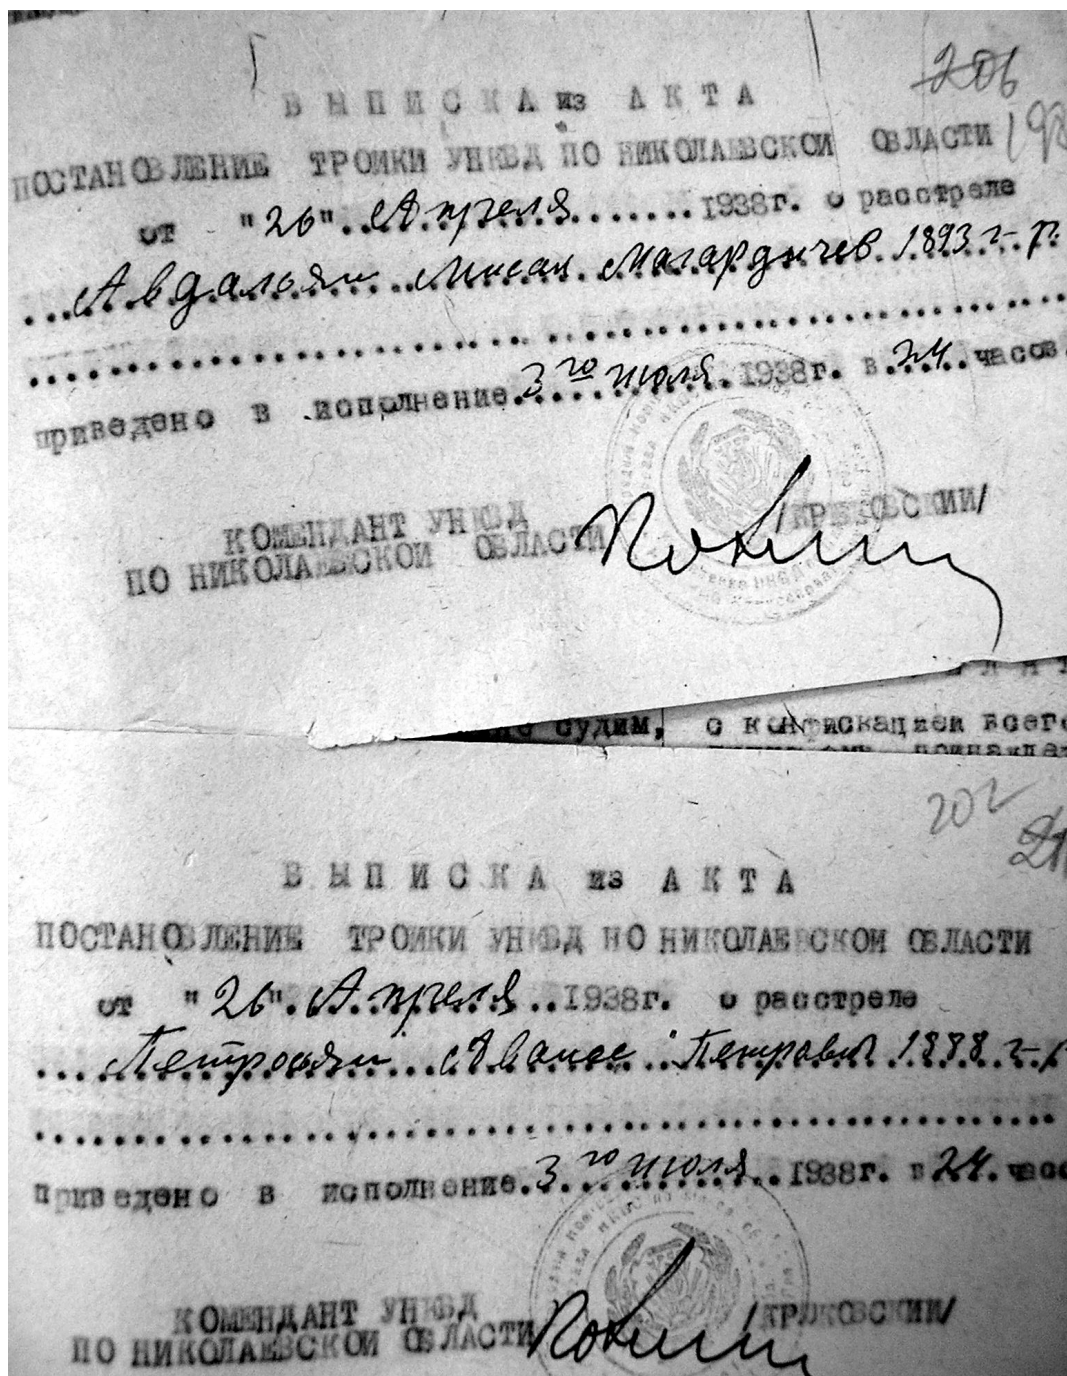 206
ВЫПИСКА из АКТА
ПОСТАНОВЛЕНИЕ ТРОЙКИ УНКВД ПО НИКОЛАЕВСКОЙ ОБЛАСТИ
от "26" Апреля 1938г. о расстреле
Авдальян Мисак Магардичев 1893 г.р.
приведено в исполнение 3го июля 1938г. в 24 часов.
КОМЕНДАНТ УНКВД
ПО НИКОЛАЕВСКОЙ ОБЛАСТИ /КРЮКОВСКИЙ/
судим, с конфискацией всего
202
ВЫПИСКА из АКТА
ПОСТАНОВЛЕНИЕ ТРОЙКИ УНКВД ПО НИКОЛАЕВСКОЙ ОБЛАСТИ
от "26" Апреля 1938г. о расстреле
Петросян Аванес Петрович 1888 г.р
приведено в исполнение 3го июля 1938г. в 24 час
КОМЕНДАНТ УНКВД
ПО НИКОЛАЕВСКОЙ ОБЛАСТИ /КРЮКОВСКИЙ/